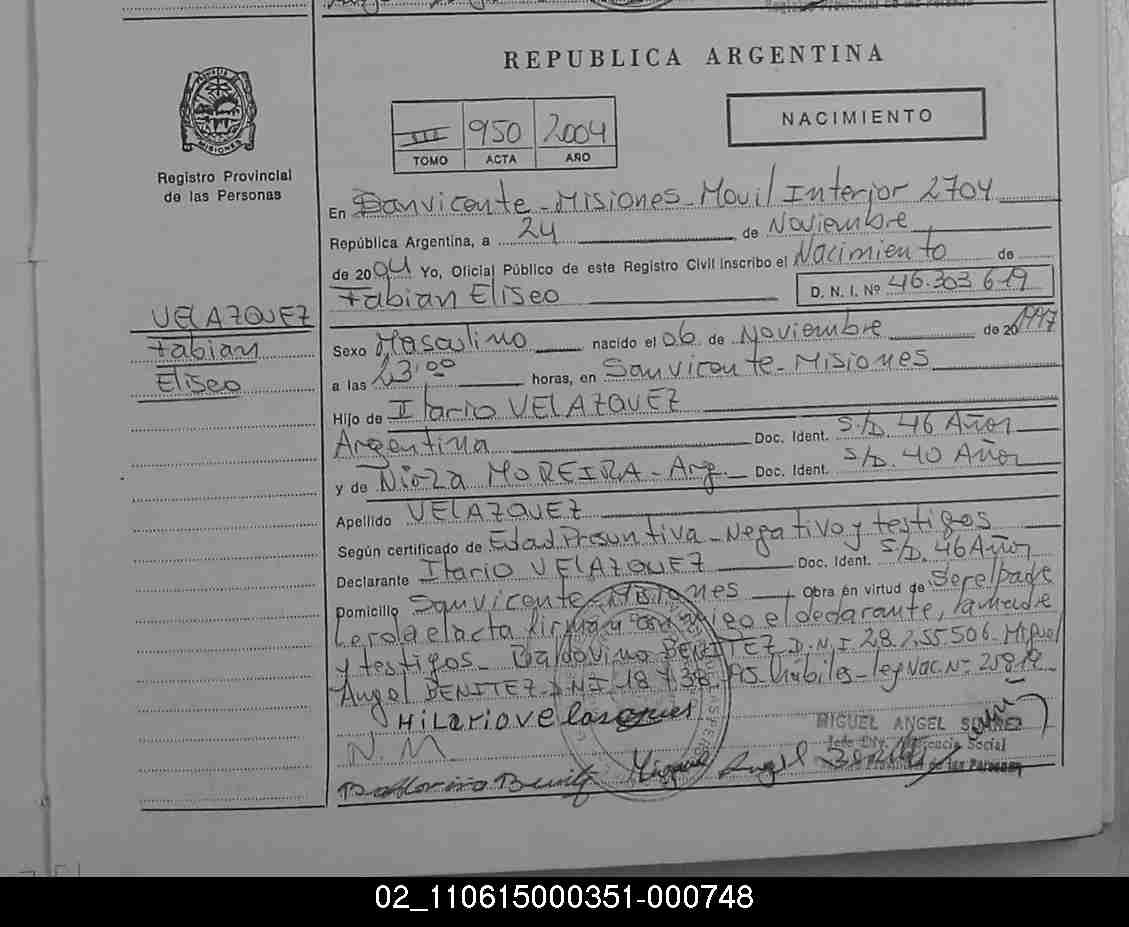 REPUBLICA ARGENTINA
MISIONES
Registro Provincial
de las Personas
III 950 2004
TOMO ACTA AÑO
NACIMIENTO
En Sanvicente - Misiones - Movil Interior 2704
República Argentina, a 24 de Noviembre
de 2004 Yo, Oficial Público de este Registro Civil inscribo el Nacimiento de
Fabian Eliseo D. N. I. Nº 46.303 619
VELAZQUEZ
Fabian
Eliseo
Sexo Masculino nacido el 06 de Noviembre de 20 1997
a las 13:00 horas, en Sanvicente - Misiones
Hijo de Ilario VELAZQUEZ
Argentina Doc. Ident. S/D. 46 Años
y de MOREIRA - Arg. Doc. Ident. S/D. 40 Años
Apellido VELAZQUEZ
Según certificado de Edad Presuntiva - Negativo y testigos
Declarante Ilario VELAZQUEZ Doc. Ident. S/D. 46 Años
Domicilio Sanvicente - Misiones Obra en virtud de Ser el padre
Leida el acta firman conmigo el declarante, la madre
y testigos - Baldovino BENITEZ D.N.I 28.255.506 - Miguel
Angel BENITEZ - D.N.I. 18 38 Hábiles - ley Nac. Nº 25819
HiLario Velasques
N. M
MIGUEL ANGEL
Social
de las Personas
Miguel Angel
02_110615000351-000748